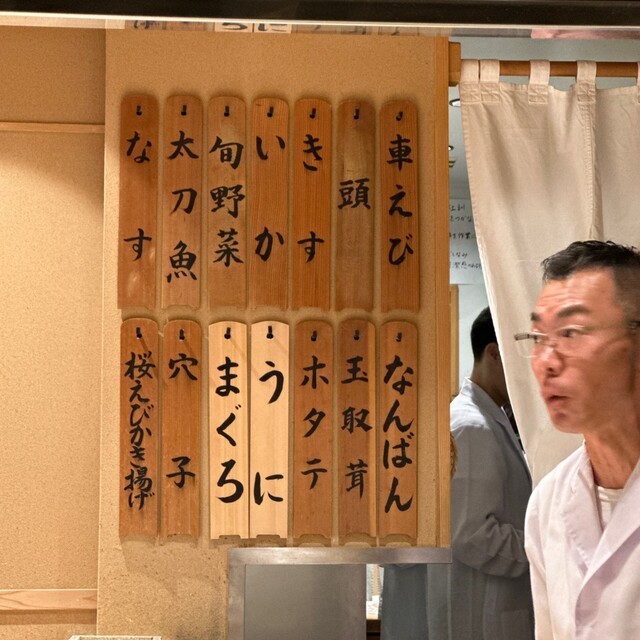 車えび
頭
きす
いか
旬野菜
太刀魚
なす
なんばん
玉取茸
ホタテ
うに
まぐろ
穴子
桜えびかき揚げ